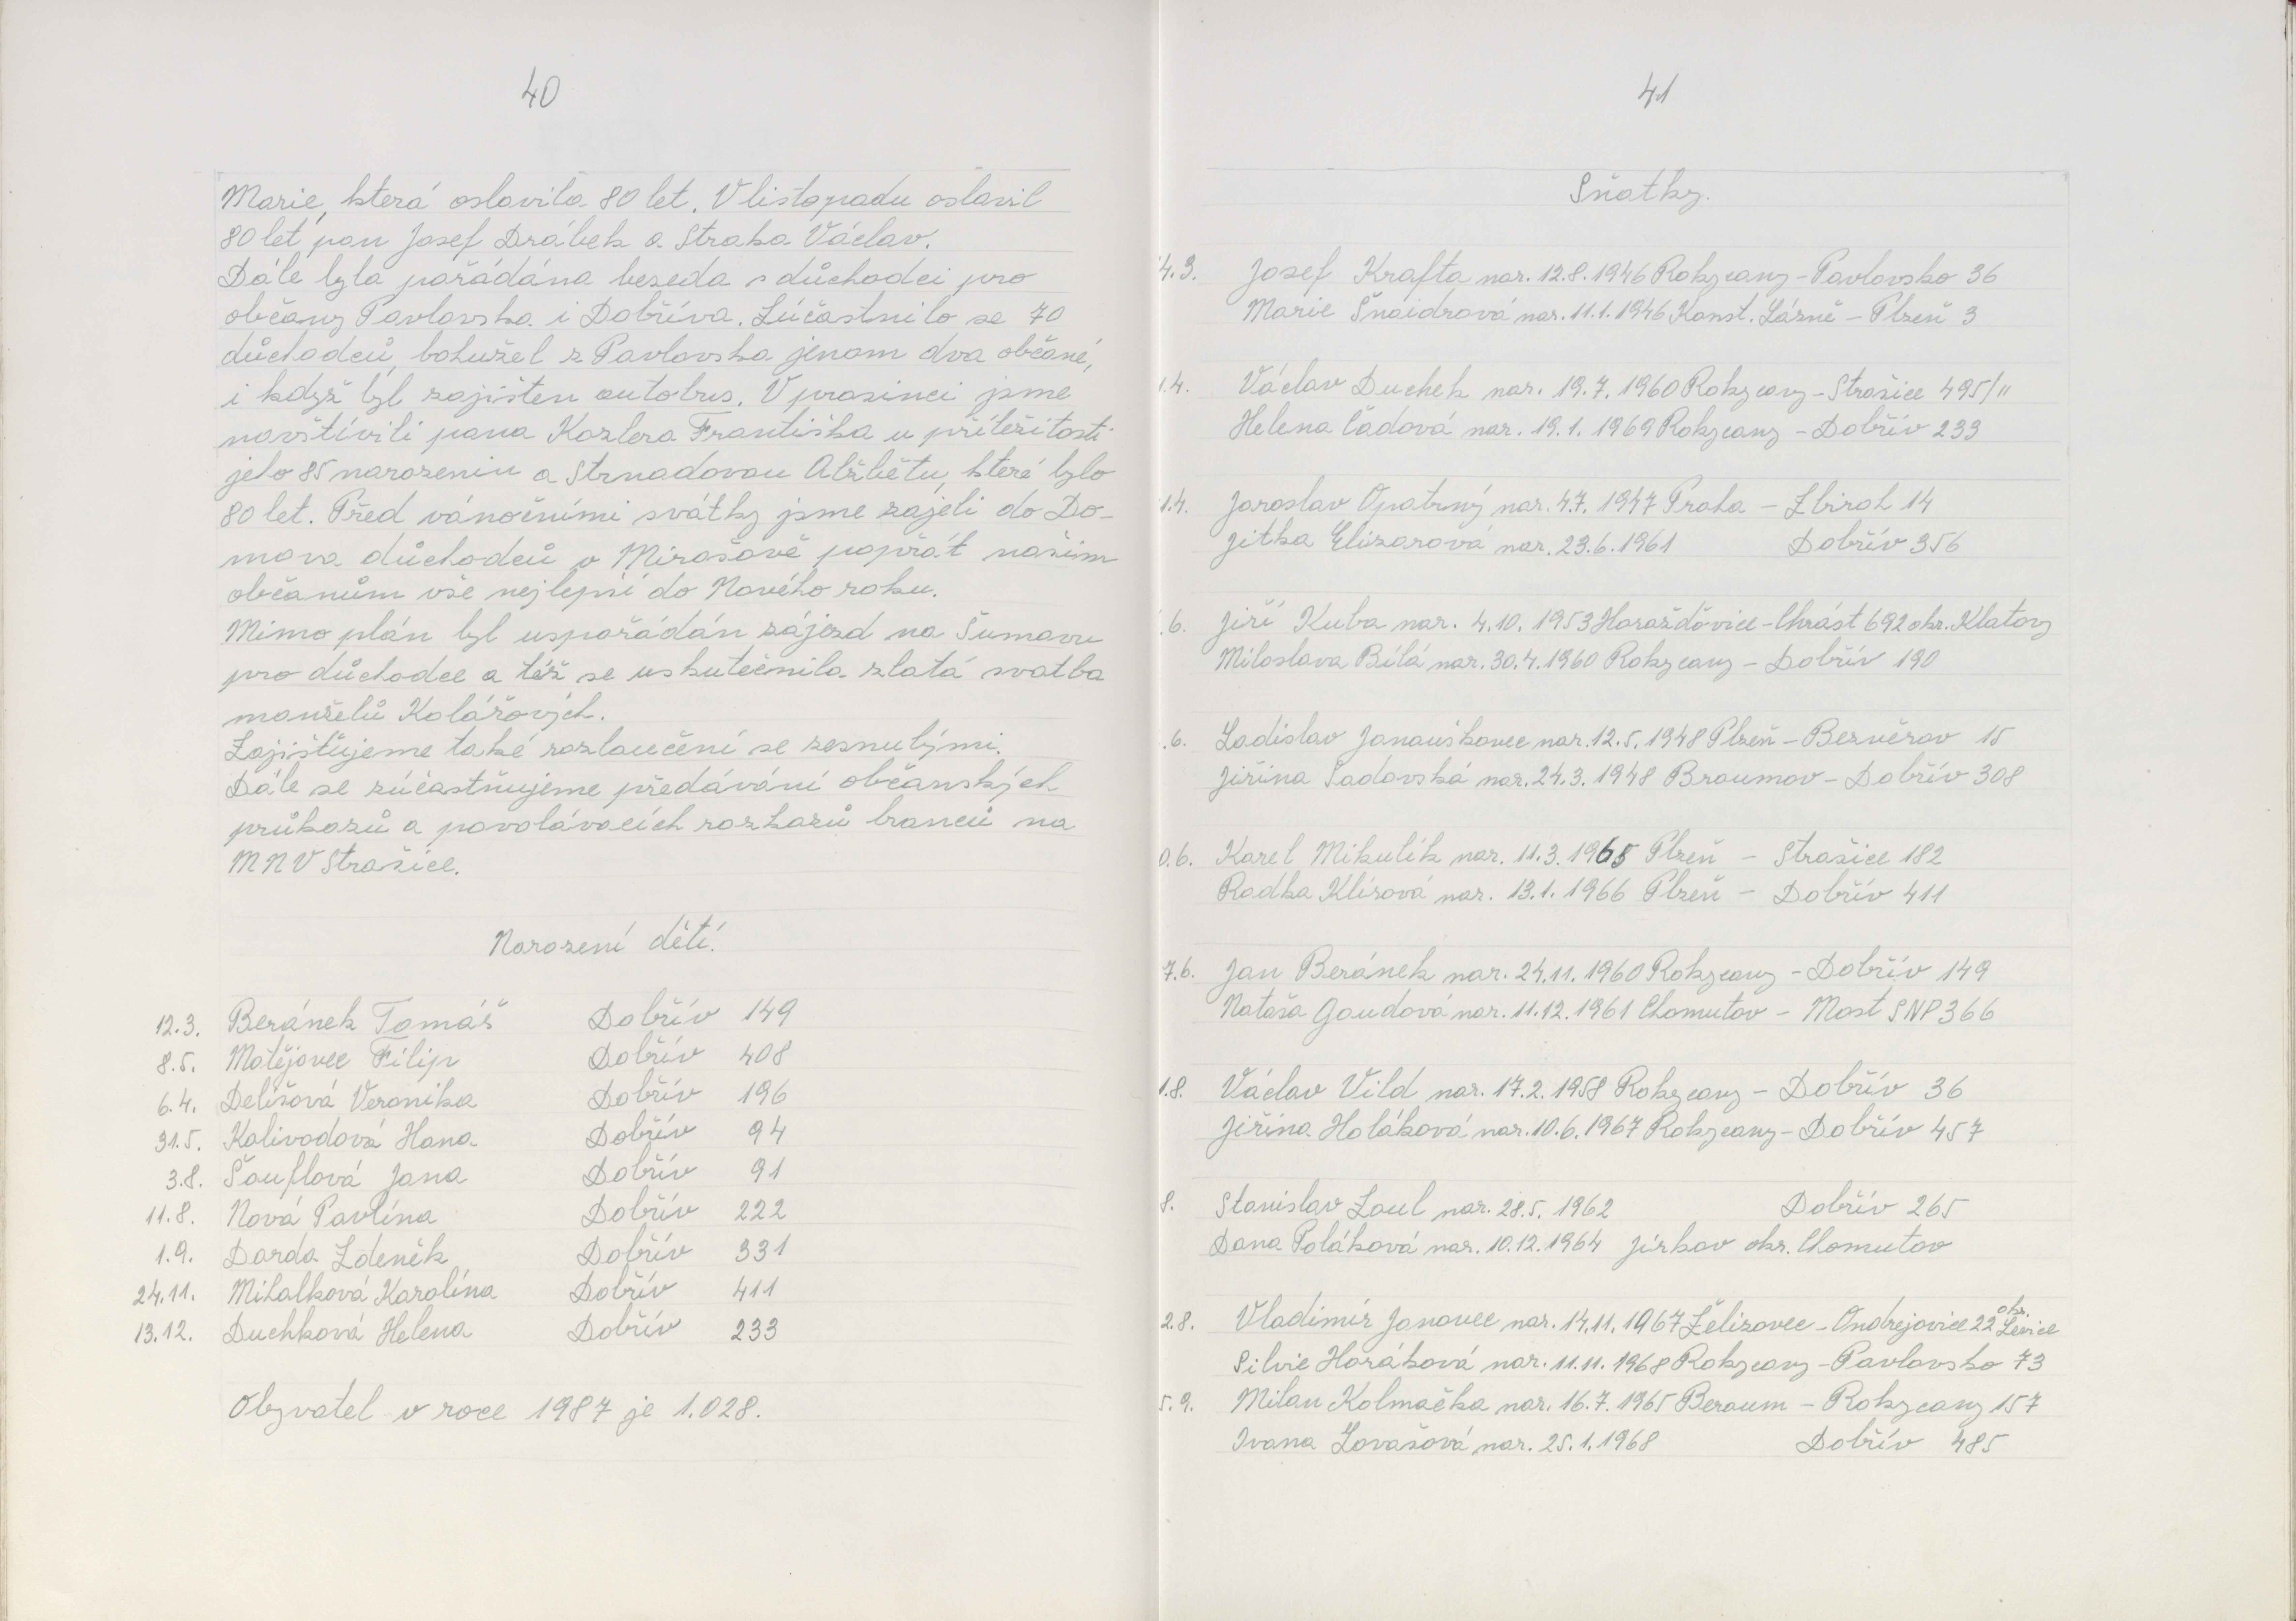 40
Marie, která oslavila 80 let. V listopadu oslavil
80 let pan Josef Drábek a Straka Václav.
Dále byla pořádána beseda s důchodci pro
občany Pavlovska i Dobříva. Zúčastnilo se 70
důchodců, bohužel z Pavlovska jenom dva občané,
i když byl zajišten autobus. V prosinci jsme
navštívili pana Kozlera Františka u příležitosti
jeho 85 narozenin a Strnadovou Alžbětu, které bylo
80 let. Před vánočními svátky jsme zajeli do Do-
mova důchodců v Mirošově popřát našim
občanům vše nejlepší do Nového roku.
Mimo plán byl uspořádán zájezd na Šumavu
pro důchodce a též se uskutečnila zlatá svatba
manželů Kolářových.
Zajišťujeme také rozloučení se zesnulými.
Dále se zúčastňujeme předávání občanských
průkazů a povolávacích rozkazů branců na
MNV Strašice.
Narození dětí.
12.3. Beránek Tomáš Dobřív 149
8.5. Matějovec Filip Dobřív 408
6.4. Delišová Veronika Dobřív 196
31.5. Kalivodová Hana Dobřív 94
3.8. Šouflová Jana Dobřív 91
11.8. Nová Pavlína Dobřív 222
1.9. Darda Zdeněk Dobřív 331
24.11. Mihalková Karolína Dobřív 411
13.12. Duchková Helena Dobřív 233
Obyvatel v roce 1987 je 1.028.
41
Sňatky.
4.3. Josef Krafta nar. 12.8.1946 Rokycany - Pavlovsko 36
Marie Šnaidrová nar. 11.1.1946 Konst. Lázně - Plzeň 3
1.4. Václav Duchek nar. 19.7.1960 Rokycany - Strašice 495/II
Helena Čadová nar. 19.1.1969 Rokycany - Dobřív 233
1.4. Jaroslav Opatrný nar. 4.7.1947 Praha - Zbiroh 14
Jitka Elizarová nar. 23.6.1961 Dobřív 356
.6. Jiří Kuba nar. 4.10.1953 Horažďovice - Chrást 692 okr. Klatovy
Miloslava Bílá nar. 30.4.1960 Rokycany - Dobřív 190
.6. Ladislav Janouškovec nar. 12.5.1948 Plzeň - Bezvěrov 15
Jiřina Sadovská nar. 24.3.1948 Broumov - Dobřív 308
0.6. Karel Mikulík nar. 11.3.1965 Plzeň - Strašice 182
Radka Klírová nar. 13.1.1966 Plzeň - Dobřív 411
7.6. Jan Beránek nar. 24.11.1960 Rokycany - Dobřív 149
Nataša Goudová nar. 11.12.1961 Chomutov - Most SNP 366
1.8. Václav Vild nar. 17.2.1958 Rokycany - Dobřív 36
Jiřina Holáková nar. 10.6.1967 Rokycany - Dobřív 457
8. Stanislav Loul nar. 28.5.1962 Dobřív 265
Dana Poláková nar. 10.12.1964 Jirkov okr. Chomutov
2.8. Vladimír Janovec nar. 14.11.1967 Želizovce - Ondrejovice 22 okr. Levice
Silvie Horáková nar. 11.11.1968 Rokycany - Pavlovsko 73
5.9. Milan Kolmačka nar. 16.7.1965 Beroun - Rokycany 157
Ivana Lovašová nar. 25.1.1968 Dobřív 485